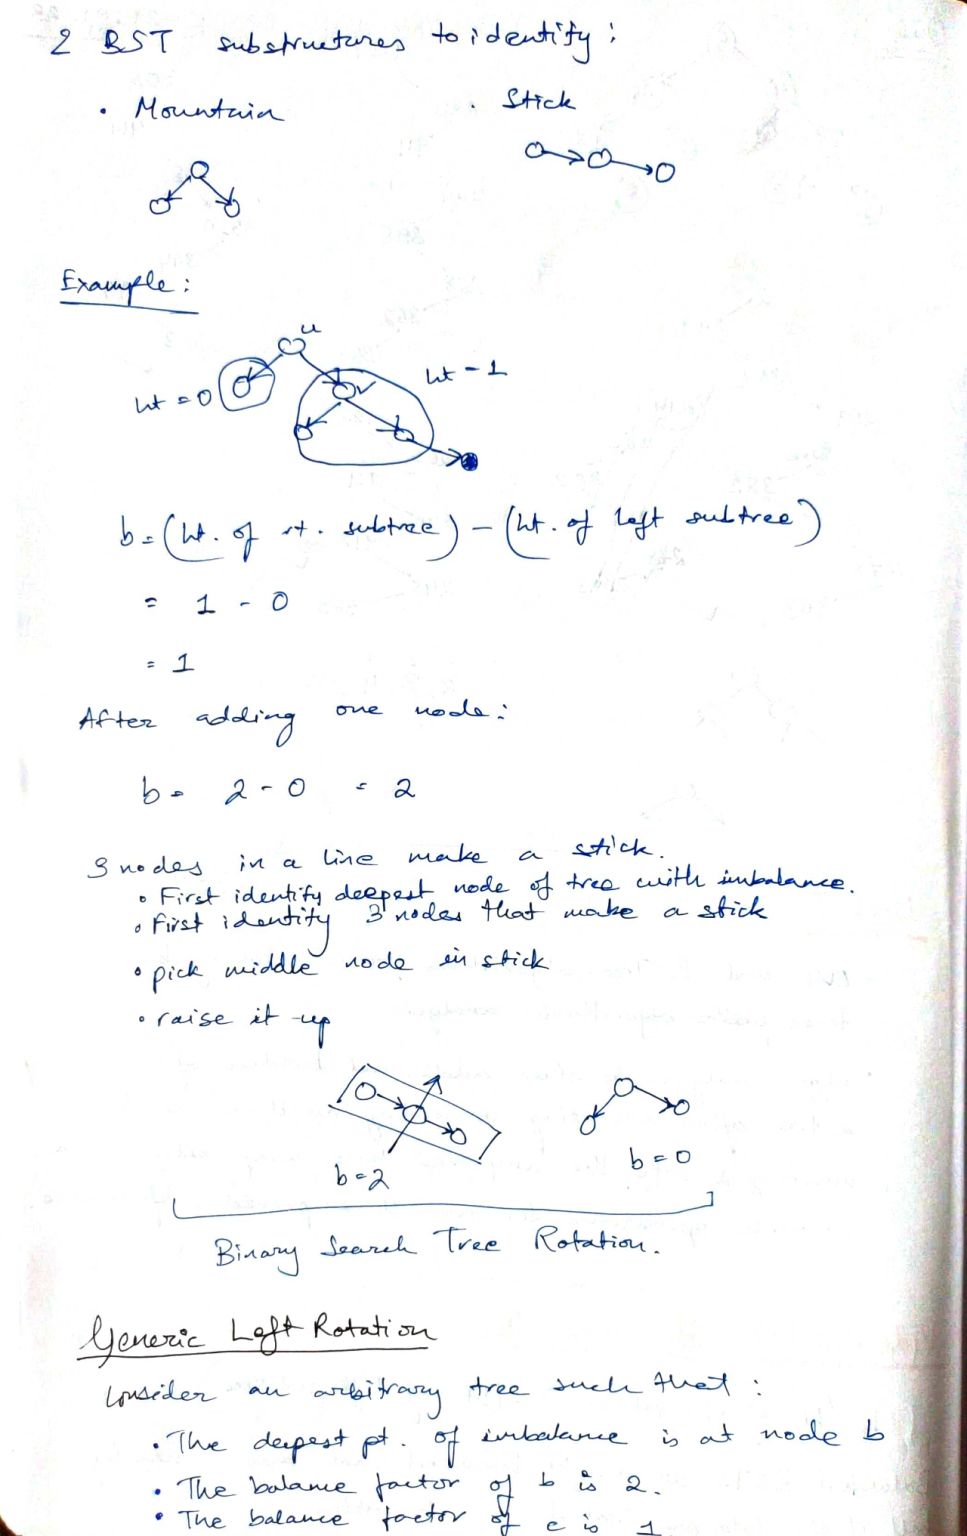 2 BST substructures to identify:
• Mountain
• Stick
Example:
u
ht = 0
v
ht - 1
b = (ht. of rt. subtree) - (ht. of left subtree)
= 1 - 0
= 1
After adding one node:
b = 2 - 0 = 2
3 nodes in a line make a stick.
• First identify deepest node of tree with imbalance.
• First identify 3 nodes that make a stick
• pick middle node in stick
• raise it up
b = 2
b = 0
Binary Search Tree Rotation.
Generic Left Rotation
Consider an arbitrary tree such that:
• The deepest pt. of imbalance is at node b
• The balance factor of b is 2.
• The balance factor of c is 1